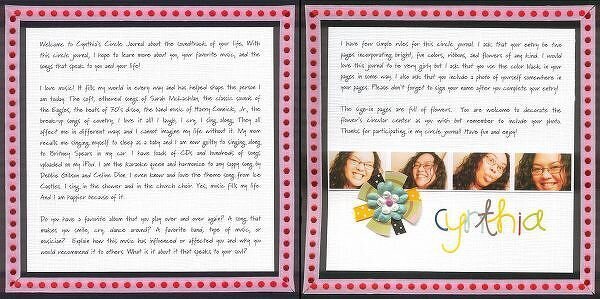 Welcome to Cynthia's Circle Journal about the soundtrack of your life. With
this circle journal, I hope to learn more about you, your favorite music, and the
songs that speak to you and your life!
I love music! It fills my world in every way and has helped shape the person I
am today. The soft, ethereal songs of Sarah McLachlan, the classic sounds of
the Eagles, the beats of 70's disco, the band music of Harry Connick, Jr., the
break-up songs of country, I love it all! I laugh, I cry, I sing along. They all
affect me in different ways and I cannot imagine my life without it. My mom
recalls me singing myself to sleep as a baby and I am now guilty to singing along
to Britney Spears in my car. I have loads of CDs and hundreds of songs
uploaded on my iPod. I am the karaoke queen and harmonize to any sappy song by
Debbie Gibson and Celine Dion. I even know and love the theme song from Ice
Castles. I sing in the shower and in the church choir. Yes, music fills my life.
And I am happier because of it.
Do you have a favorite album that you play over and over again? A song that
makes you smile, cry, dance around? A favorite band, type of music, or
musician? Explain how this music has influenced or affected you and why you
would recommend it to others. What is it about it that speaks to your soul?
I have four simple rules for this circle journal. I ask that your entry be two
pages incorporating bright, fun colors, ribbons, and flowers of any kind. I would
love this journal to be very girly but I ask that you use the color black in your
pages in some way. I also ask that you include a photo of yourself somewhere in
your pages. Please don't forget to sign your name after you complete your entry!
The sign-in pages are full of flowers. You are welcome to decorate the
flower's circular center as you wish but remember to include your photo.
Thanks for participating in my circle journal! Have fun and enjoy!
cynthia